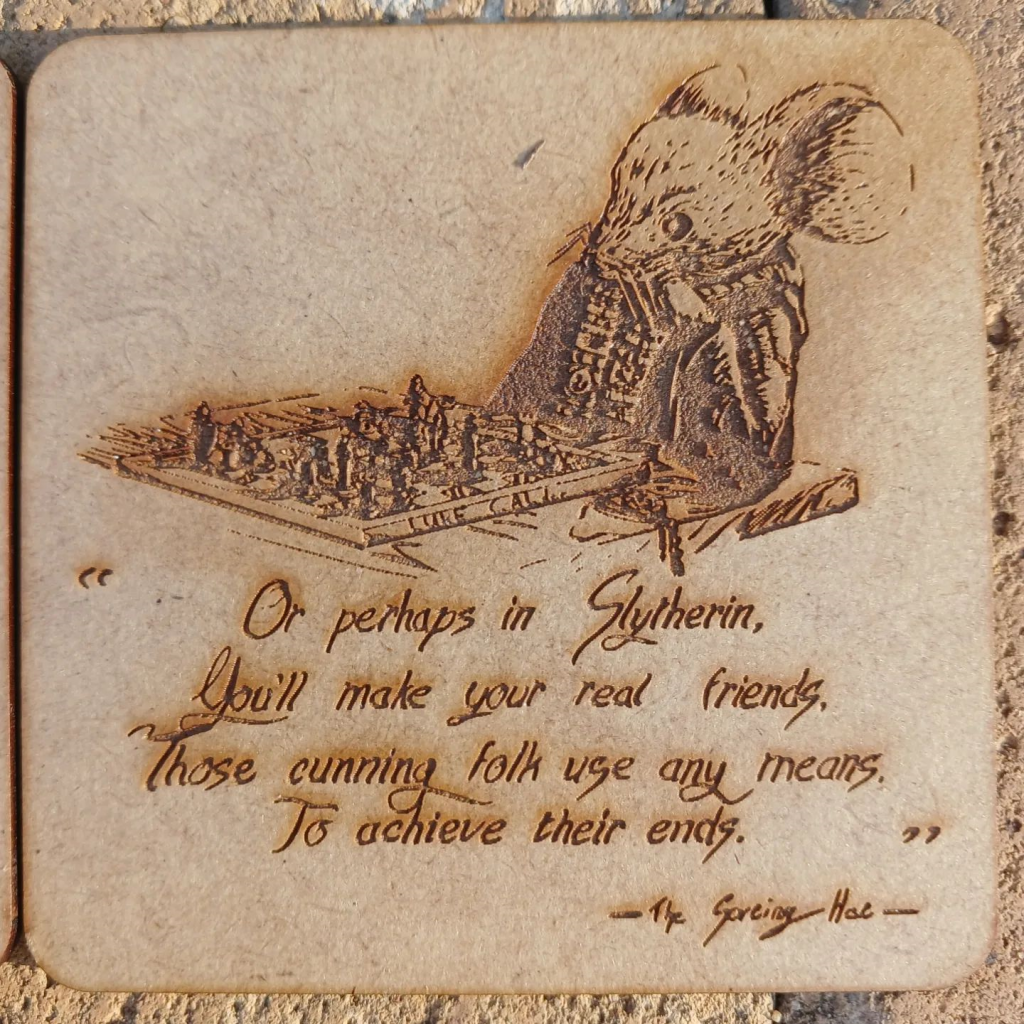 LUKE
“ Or perhaps in Slytherin,
You'll make your real friends,
Those cunning folk use any means,
To achieve their ends. ”
— The Sorting Hat —